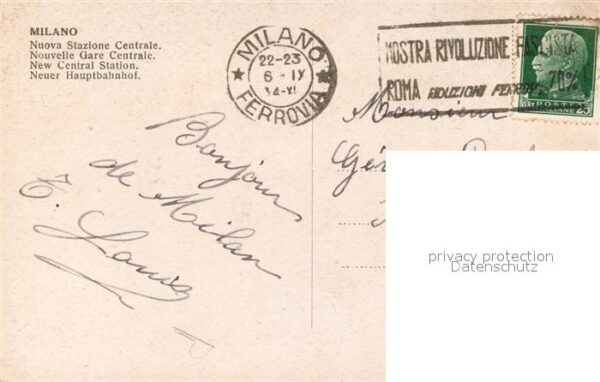 MILANO
Nuova Stazione Centrale.
Nouvelle Gare Centrale.
New Central Station.
Neuer Hauptbahnhof.
MILANO
22-23
6 · IX
34-XI
FERROVIA
MOSTRA RIVOLUZIONE FASCISTA
ROMA RIDUZIONI FERROV. 70%
POSTE
ITALIANE 25
Monsieur
Bonjour
de Milan
privacy protection
Datenschutz